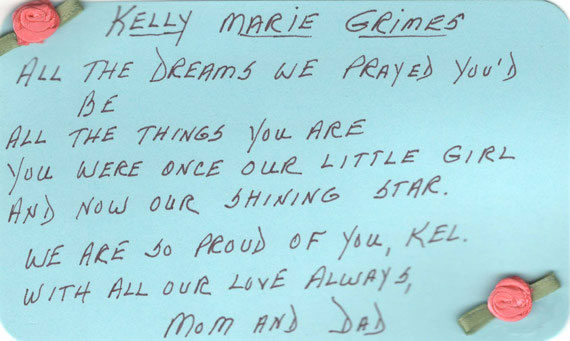 KELLY MARIE GRIMES
ALL THE DREAMS WE PRAYED YOU'D
BE
ALL THE THINGS YOU ARE
YOU WERE ONCE OUR LITTLE GIRL
AND NOW OUR SHINING STAR.
WE ARE SO PROUD OF YOU, KEL.
WITH ALL OUR LOVE ALWAYS,
MOM AND DAD